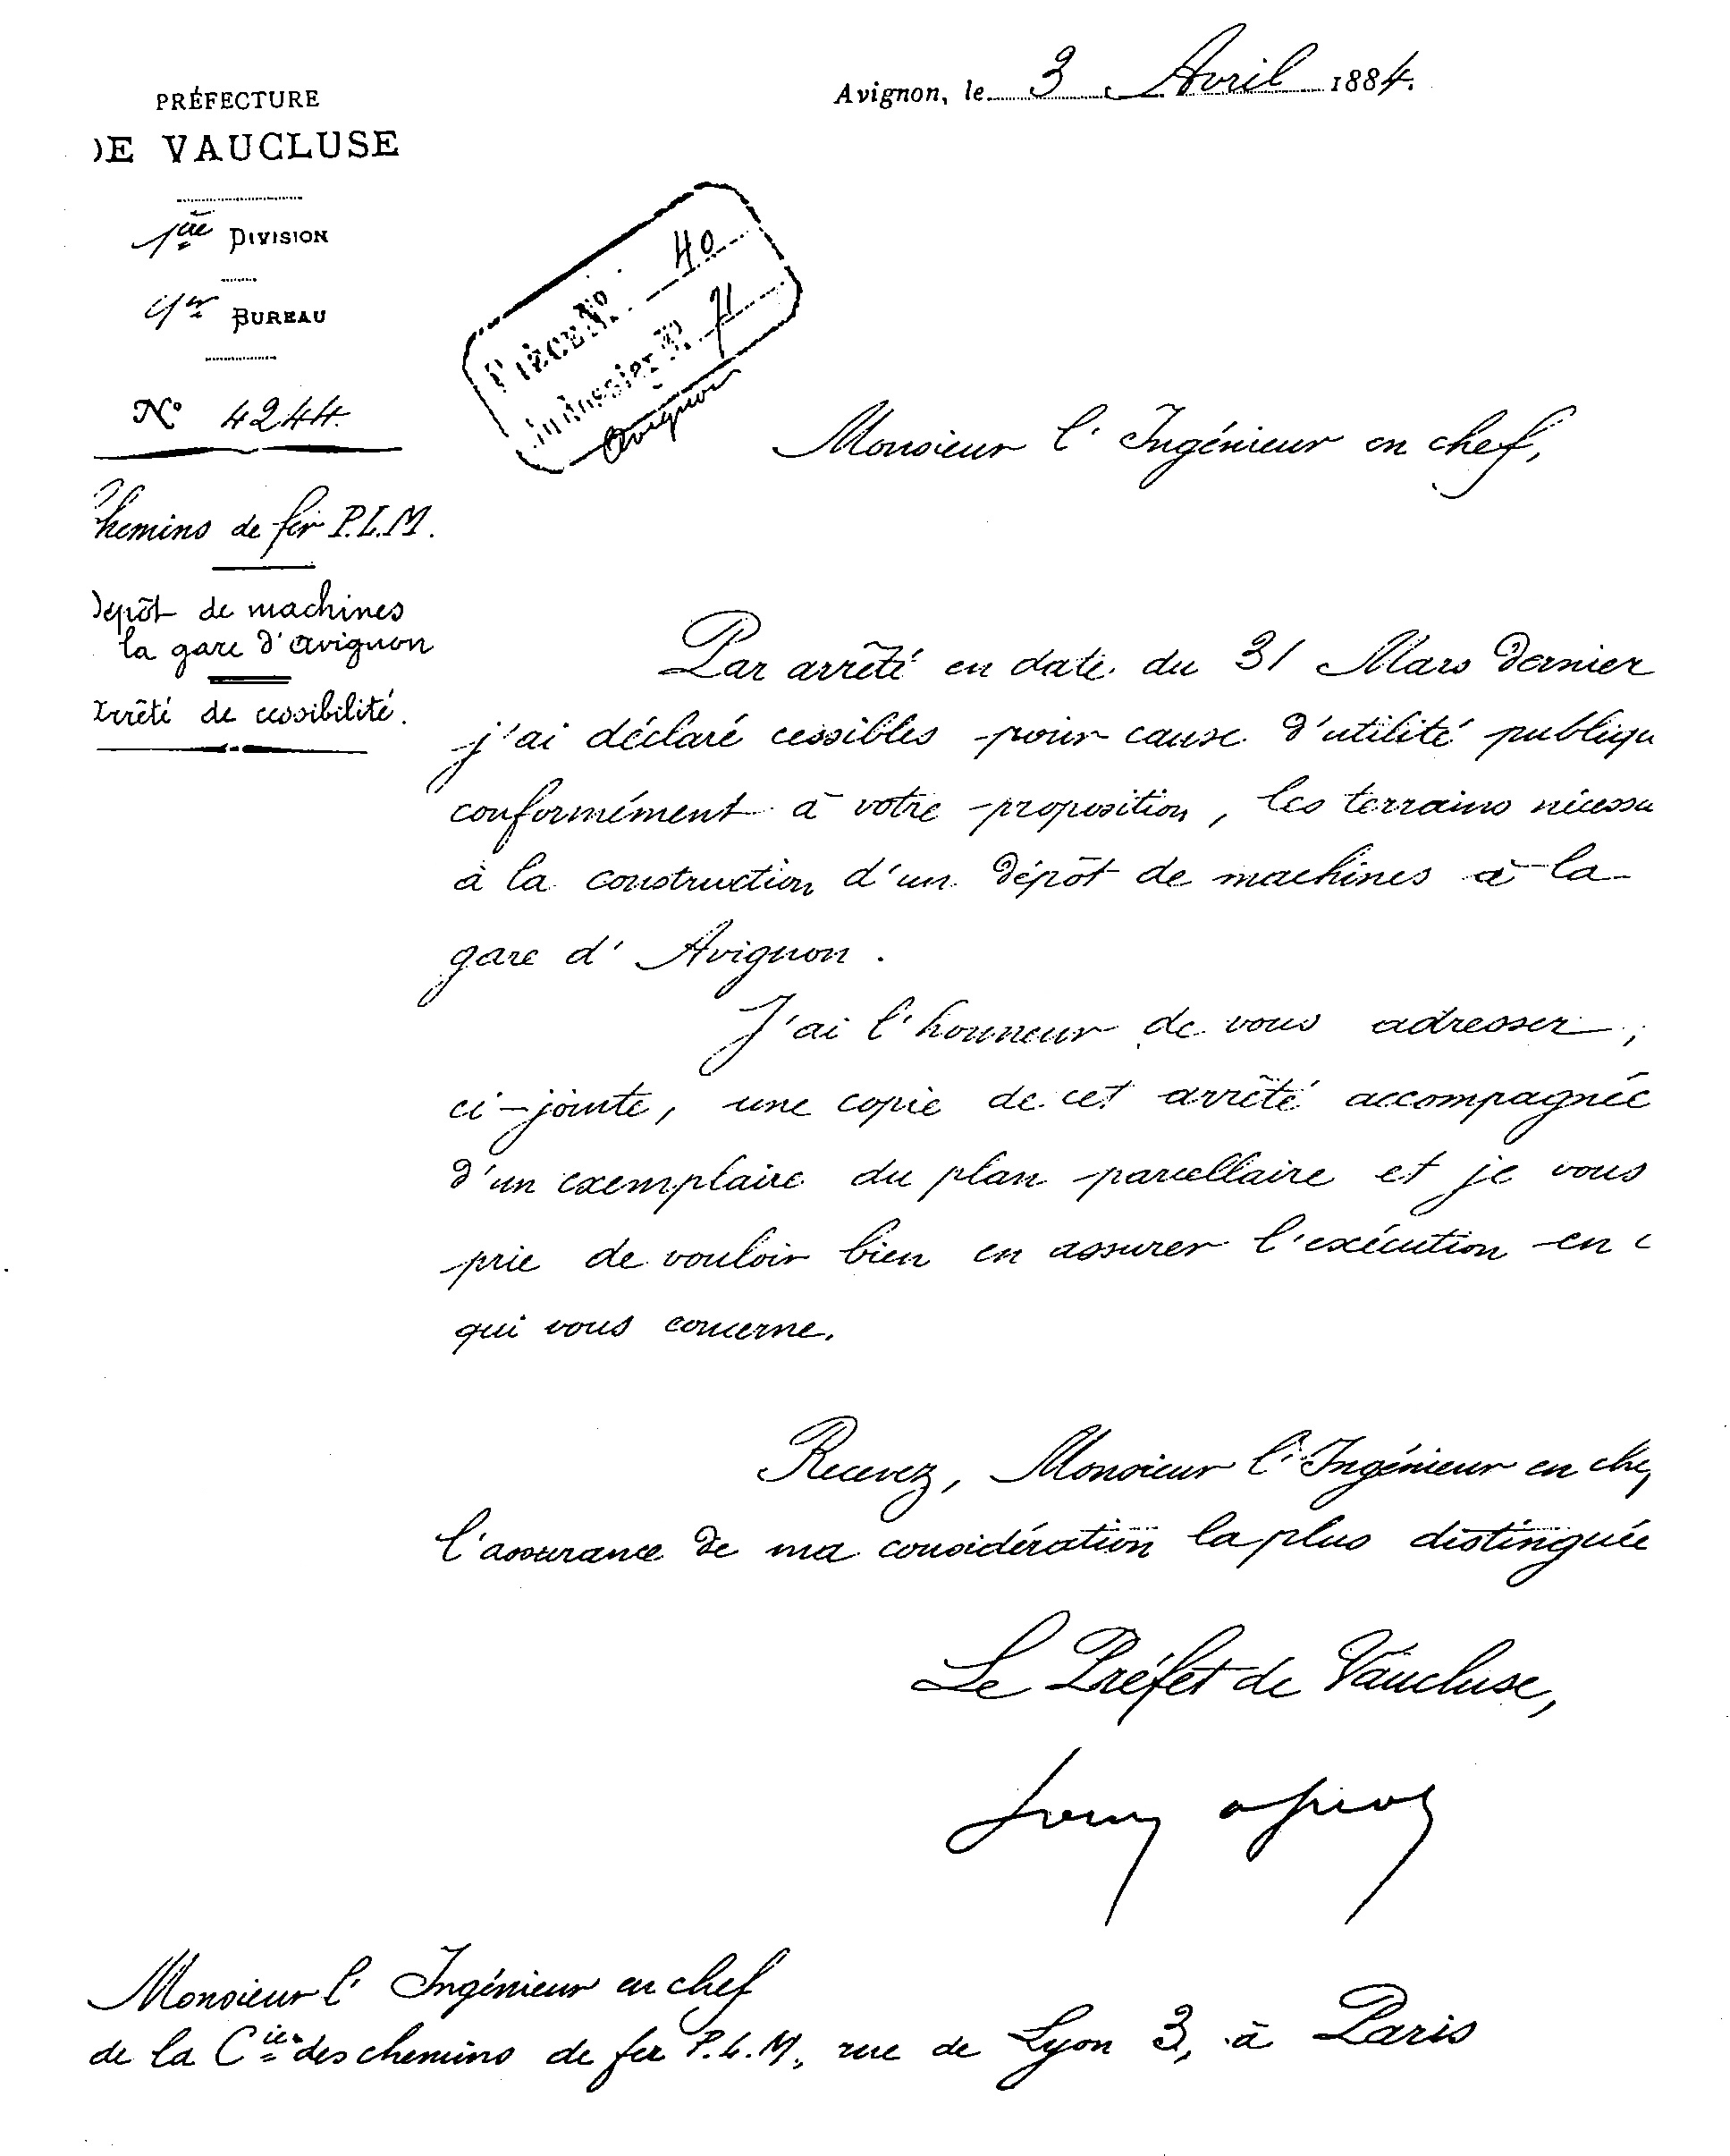 Avignon, le 3 Avril 1884.
PRÉFECTURE
DE VAUCLUSE
1ère DIVISION
1er BUREAU
N° 4244.
Chemins de fer P.L.M.
Dépôt de machines
la gare d'Avignon
Arrêté de cessibilité.
PIÈCE N° 40
du dossier N° 71
Avignon
Monsieur l'Ingénieur en chef,
Par arrêté en date du 31 Mars dernier
j'ai déclaré cessibles pour cause d'utilité publiqu
conformément à votre proposition, les terrains nécessa
à la construction d'un dépôt de machines à la
gare d'Avignon.
J'ai l'honneur de vous adresser,
ci-jointe, une copie de cet arrêté accompagnée
d'un exemplaire du plan parcellaire et je vous
prie de vouloir bien en assurer l'exécution en c
qui vous concerne.
Recevez, Monsieur l'Ingénieur en chef
l'assurance de ma considération la plus distinguée
Le Préfet de Vaucluse,
Monsieur l'Ingénieur en chef
de la Cie des chemins de fer P.L.M., rue de Lyon 3, à Paris